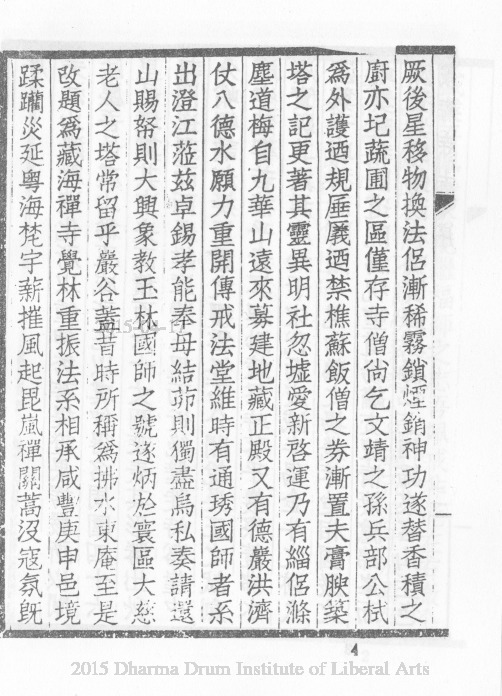 厥後星移物換法侣漸稀霧鎖煙銷神功遂替香積之
廚亦圮蔬圃之區僅存寺僧尙乞文靖之孫兵部公栻
爲外護迺規厓廙迺禁樵蘇飯僧之券漸置夫膏腴築
塔之記更著其靈異明社忽墟愛新啓運乃有緇侶滌
塵道梅自九華山遠來募建地藏正殿又有德嚴洪濟
仗八德水願力重開傳戒法堂維時有通琇國師者系
出澄江蒞兹卓錫孝能奉母結茆則獨盡烏私奏請還
山賜帑則大興象教玉林國師之號遂炳於寰區大慈
老人之塔常留乎巖谷蓋昔時所稱爲拂水東庵至是
改題爲藏海禪寺覺林重振法系相承咸豐庚申邑境
蹂躪災延粵海梵宇薪摧風起毘嵐禪關蒿沒寇氛旣
2015 Dharma Drum Institute of Liberal Arts